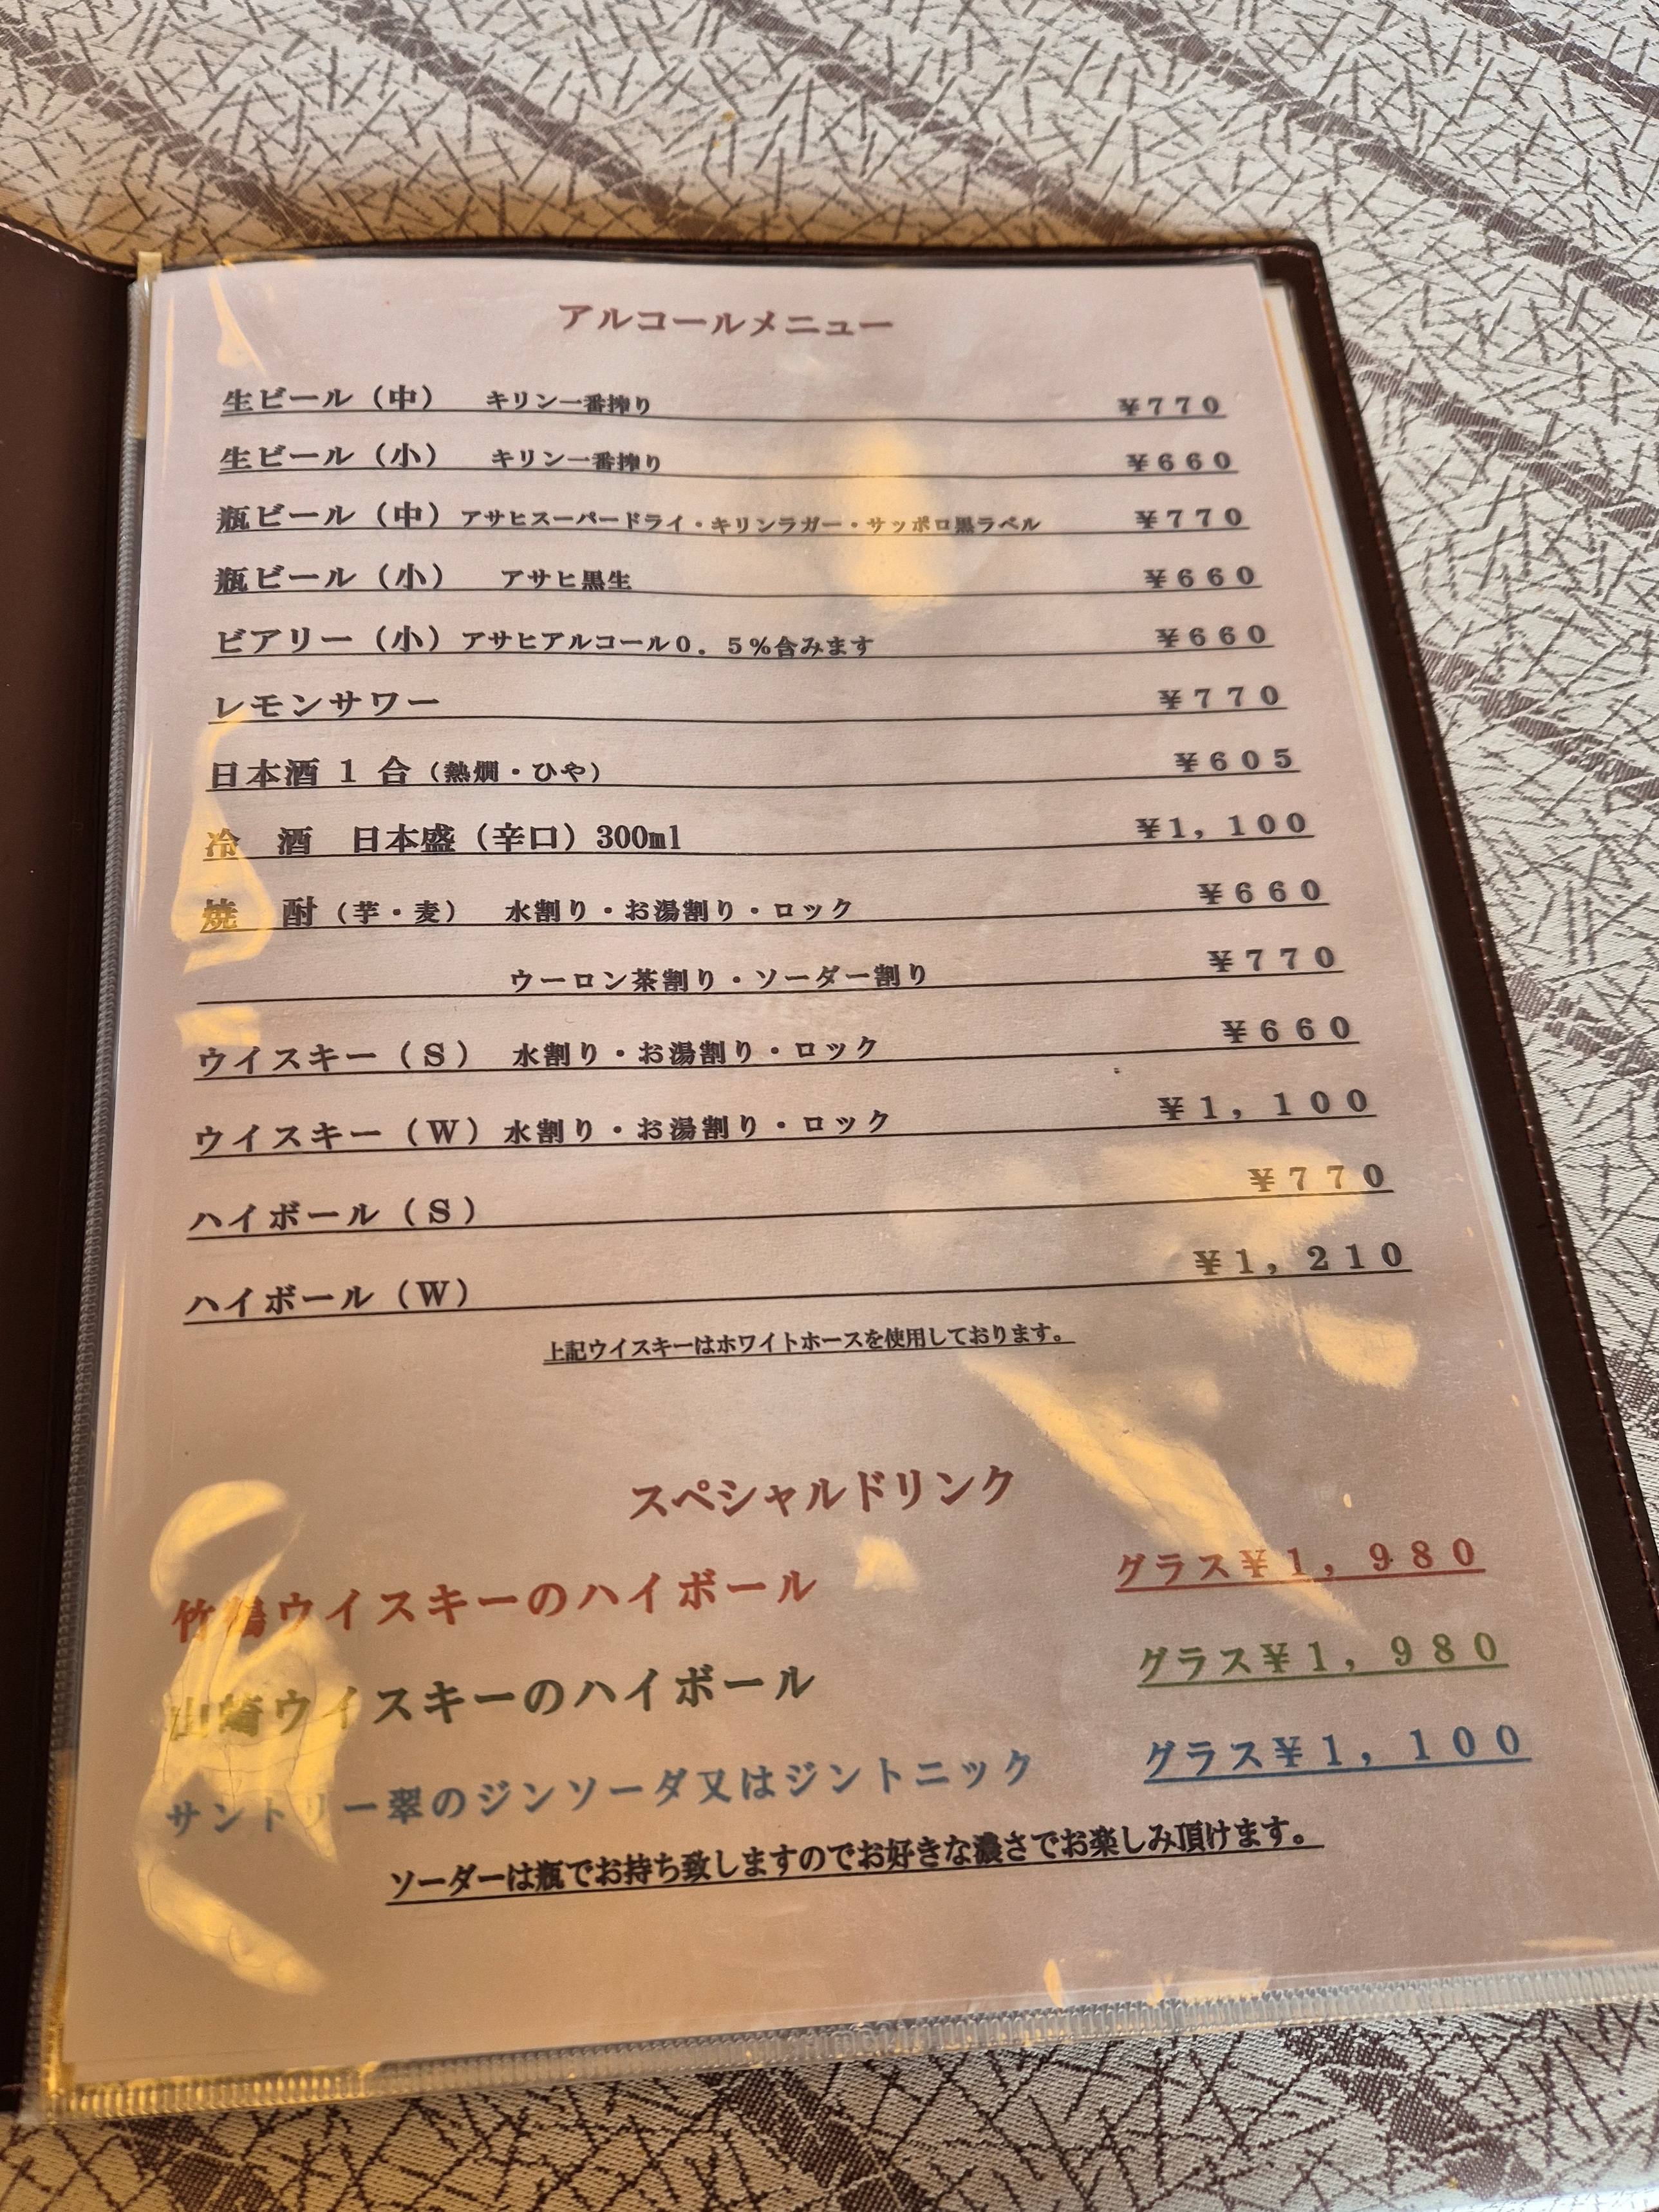 アルコールメニュー
生ビール（中） キリン一番搾り ￥７７０
生ビール（小） キリン一番搾り ￥６６０
瓶ビール（中）アサヒスーパードライ・キリンラガー・サッポロ黒ラベル ￥７７０
瓶ビール（小） アサヒ黒生 ￥６６０
ビアリー（小）アサヒアルコール０．５％含みます ￥６６０
レモンサワー ￥７７０
日本酒１合（熱燗・ひや） ￥６０５
冷　酒　日本盛（辛口）300ml ￥１，１００
焼　酎（芋・麦） 水割り・お湯割り・ロック ￥６６０
ウーロン茶割り・ソーダー割り ￥７７０
ウイスキー（Ｓ） 水割り・お湯割り・ロック ￥６６０
ウイスキー（Ｗ）水割り・お湯割り・ロック ￥１，１００
ハイボール（Ｓ） ￥７７０
ハイボール（Ｗ） ￥１，２１０
上記ウイスキーはホワイトホースを使用しております。
スペシャルドリンク
竹鶴ウイスキーのハイボール グラス￥１，９８０
山崎ウイスキーのハイボール グラス￥１，９８０
サントリー翠のジンソーダ又はジントニック グラス￥１，１００
ソーダーは瓶でお持ち致しますのでお好きな濃さでお楽しみ頂けます。